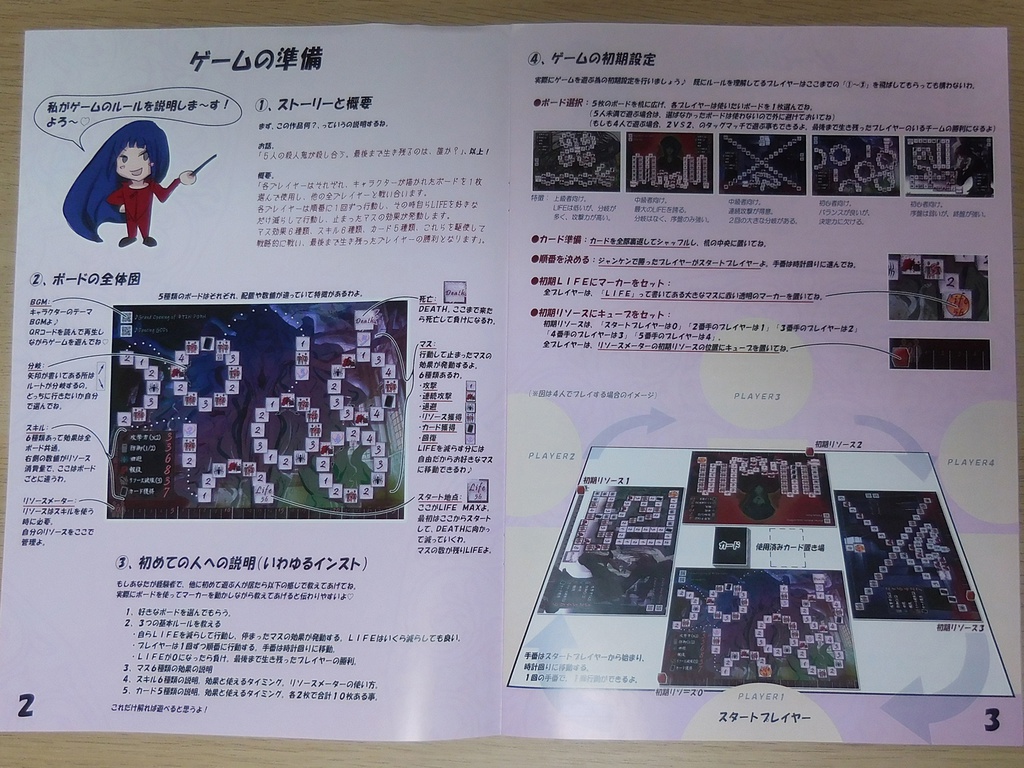 ゲームの準備
私がゲームのルールを説明しま～す！
よろ～♡
①、ストーリーと概要
まず、この作品何？、っていうの説明するね。
お話、
「5人の殺人鬼が殺し合う。最後まで生き残るのは、誰か？」以上！
概要、
「各プレイヤーはそれぞれ、キャラクターが描かれたボードを1枚
選んで使用し、他の全プレイヤーと戦い合います。
各プレイヤーは順番に1回ずつ行動し、その時自らLIFEを好きな
だけ減らして行動し、止まったマスの効果が発動します。
マス効果6種類、スキル6種類、カード5種類、これらを駆使して
戦略的に戦い、最後まで生き残ったプレイヤーの勝利となります」。
②、ボードの全体図
5種類のボードはそれぞれ、配置や数値が違っていて特徴があるわよ。
BGM:
キャラクターのテーマ
BGMよ。
QRコードを読んで再生し
ながらゲームを遊んでね♡
分岐:
矢印が書いてある所は
ルートが分岐するの。
どっちに行きたいか自分
で選んでね。
スキル:
6種類あって効果は全
ボード共通。
右側の数値がリソース
消費量で、ここはボード
ごとに違うわ。
リソースメーター:
リソースはスキルを使う
時に必要。
自分のリソースをここで
管理よ。
死亡:
DEATH、ここまで来た
ら死亡して負けになるわ。
マス:
行動して止まったマスの
効果が発動するよ。
6種類あるわ。
・攻撃
・連続攻撃
・通過
・リソース獲得
・カード獲得
・回復
LIFEを減らす分には
自由だからお好きなマス
に移動できるわ♪
スタート地点:
ここがLIFE MAXよ。
最初はここからスタート
して、DEATHに向かっ
て減っていくわ。
マスの数が残りLIFEよ。
Death
Life
36
③、初めての人への説明(いわゆるインスト)
もしあなたが経験者で、他に初めて遊ぶ人が居たら以下の感じで教えてあげてね。
実際にボードを使ってマーカーを動かしながら教えてあげると伝わりやすいよ♡
1、好きなボードを選んでもらう。
2、3つの基本ルールを教える
・自らLIFEを減らして行動し、停まったマスの効果が発動する。LIFEはいくら減らしても良い。
・プレイヤーは1回ずつ順番に行動する。手番は時計回りに移動。
・LIFEが0になったら負け。最後まで生き残ったプレイヤーの勝利。
3、マス6種類の効果の説明
4、スキル6種の説明、効果と使えるタイミング。リソースメーターの使い方。
5、カード5種類の説明、効果と使えるタイミング、各2枚で合計10枚ある事。
これだけ解れば遊べると思うよ！
2
④、ゲームの初期設定
実際にゲームを遊ぶ為の初期設定を行いましょう♪ 既にルールを理解してるプレイヤーはここまでの「①～③」を飛ばしてもらっても構わないわ。
●ボード選択：5枚のボードを机に広げ、各プレイヤーは使いたいボードを1枚選んでね。
(5人未満で遊ぶ場合は、選ばなかったボードは使わないので外に避けておいてね)
(もしも4人で遊ぶ場合、2VS2、のタッグマッチで遊ぶ事もできるよ、最後まで生き残ったプレイヤーのいるチームの勝利になるよ)
特徴：上級者向け。
LIFEは低いが、分岐が
多く、攻撃力が高い。
中級者向け。
最大のLIFEを誇る。
分岐はなく、序盤のみ強い。
中級者向け。
連続攻撃が得意。
2回の大きな分岐がある。
初心者向け。
バランスが良いが、
決定力に欠ける。
初心者向け。
序盤は弱いが、終盤が強い。
●カード準備：カードを全部裏返してシャッフルし、机の中央に置いてね。
●順番を決める：ジャンケンで勝ったプレイヤーがスタートプレイヤーよ。手番は時計回りに進んでね。
●初期LIFEにマーカーをセット：
全プレイヤーは、「LIFE」って書いてある大きなマスに赤い透明のマーカーを置いてね。
●初期リソースにキューブをセット：
初期リソースは、「スタートプレイヤーは0」「2番手のプレイヤーは1」「3番手のプレイヤーは2」
「4番手のプレイヤーは3」「5番手のプレイヤーは4」。
全プレイヤーは、リソースメーターの初期リソースの位置にキューブを置いてね。
(※図は4人でプレイする場合のイメージ)
PLAYER3
PLAYER2
PLAYER4
初期リソース2
初期リソース1
カード
使用済みカード置き場
初期リソース3
手番はスタートプレイヤーから始まり、
時計回りに移動する。
1回の手番で、1回行動ができるよ。
初期リソース0
PLAYER1
スタートプレイヤー
3